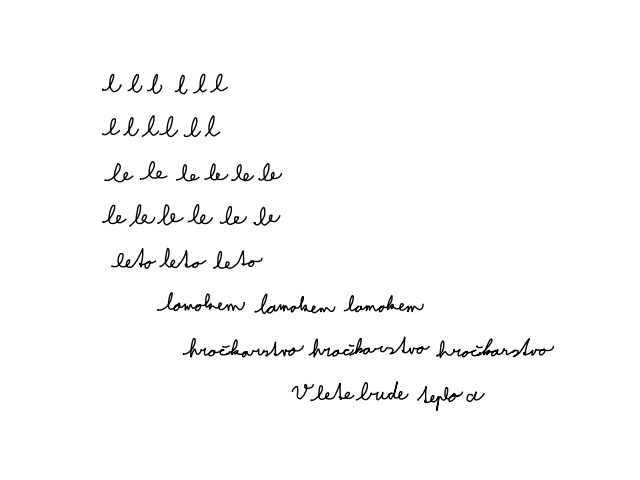 l l l l l l
l l l l l l
le le le le le le
le le le le le le
leto leto leto
lamokem lamokem lamokem
hračkarstvo hračkarstvo hračkarstvo
V lete bude teplo a